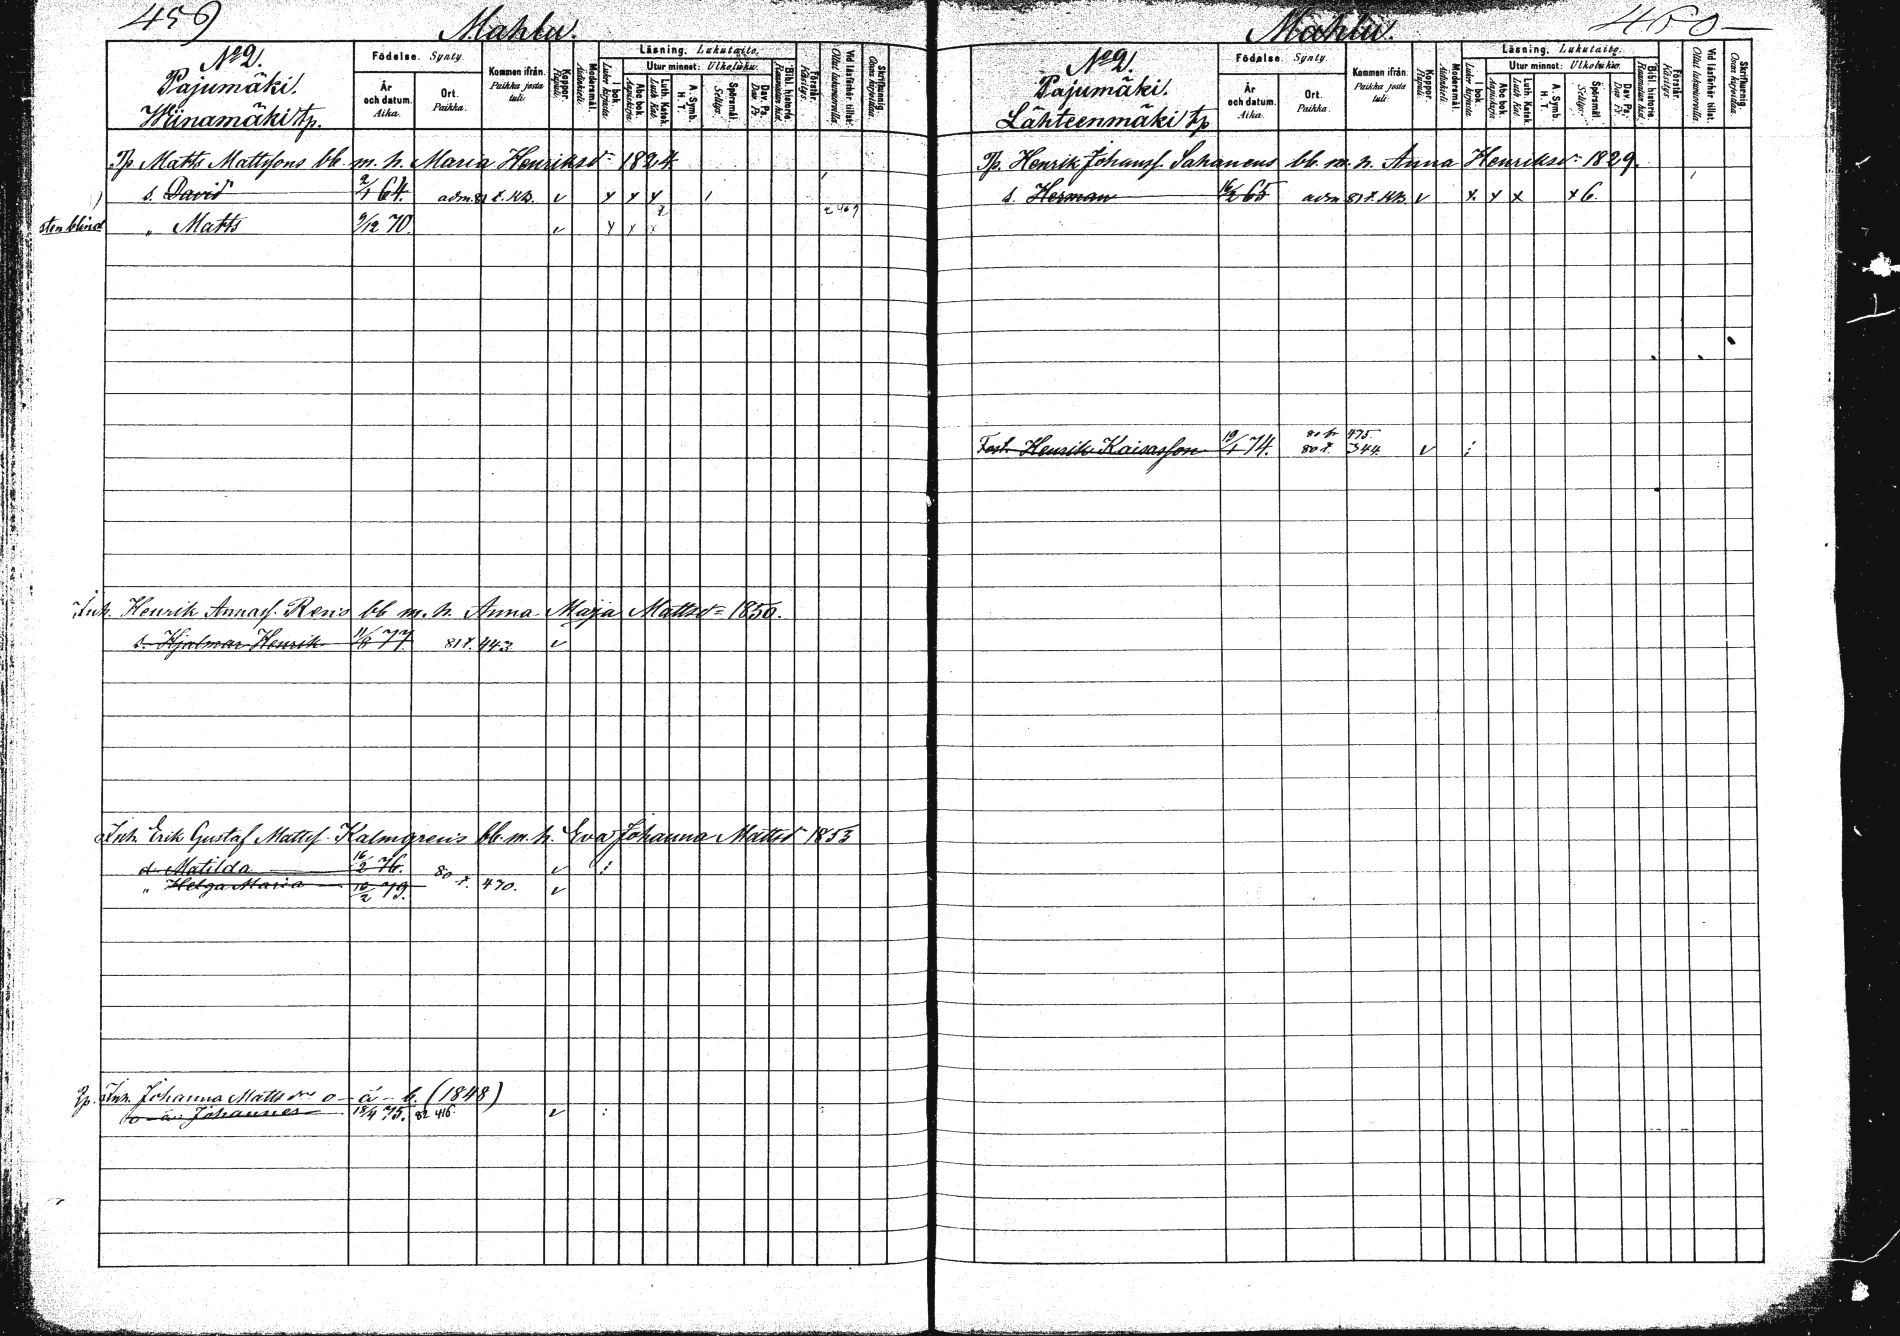 459
Mahlu.
No 2.
Pajumäki.
Wiinamäki tp.
Födelse. Synty.
År och datum. Aika.
Ort. Paikka.
Kommen ifrån. Paikka josta tuli.
Koppor. Rupuli.
Modersmål. Äidinkieli.
Läsning. Lukutaito.
Luker i bok.
Utur minnet: Ulkoluku:
Abc bok. Aapiskirja
Luth. Katek. Luth. Kat.
A. Symb. H. T.
Spörsmål Selitys.
Dav. Ps. Dav. Ps.
Bibl. historia.
Förstår. Käsitys.
Vid läsförhör tillst. Ollut lukuvuorolla.
Skriftkunnig. Osaa kirjoittaa.
Tp Matts Mattssons bb m. h. Maria Henriksd 1824.
s. David 2/1 64. adm. 81 t. KB. v x x x
sten blind " Matts 9/12 70. v x x x
Inh. Henrik Annass. Rens bb m. h. Anna Maja Mattsd 1850.
s. Hjalmar Henrik 11/8 77. 81 t. 443 v
Inh. Erik Gustaf Matts. Kalmgrens bb. m. h. Eva Johanna Mattsd 1853
d. Matilda 16/2 76. v :
" Helga Maria 10/2 79. 80 t. 470. v
Inh. Johanna Mattsdrs o-ä-b. (1848)
o-ä Johannes 18/4 75. 82 416. v :
460
Mahlu.
No 2.
Pajumäki.
Lähteenmäki tp
Födelse. Synty.
År och datum. Aika.
Ort. Paikka.
Kommen ifrån. Paikka josta tuli.
Koppor. Rupuli.
Modersmål. Äidinkieli.
Läsning. Lukutaito.
Luker i bok.
Utur minnet: Ulkoluku:
Abc bok. Aapiskirja
Luth. Katek. Luth. Kat.
A. Symb. H. T.
Spörsmål Selitys.
Dav. Ps. Dav. Ps.
Bibl. historia.
Förstår. Käsitys.
Vid läsförhör tillst. Ollut lukuvuorolla.
Skriftkunnig. Osaa kirjoittaa.
Tp. Henrik Johanss. Sahanens bb. m. h. Anna Henriksd 1829.
s. Herman 16/2 65 adm 81 t. KB v x x x x 6.
Fost. Henrik Kaisasson 19/1 74. 80 fr 475. 80 t. 344. v :